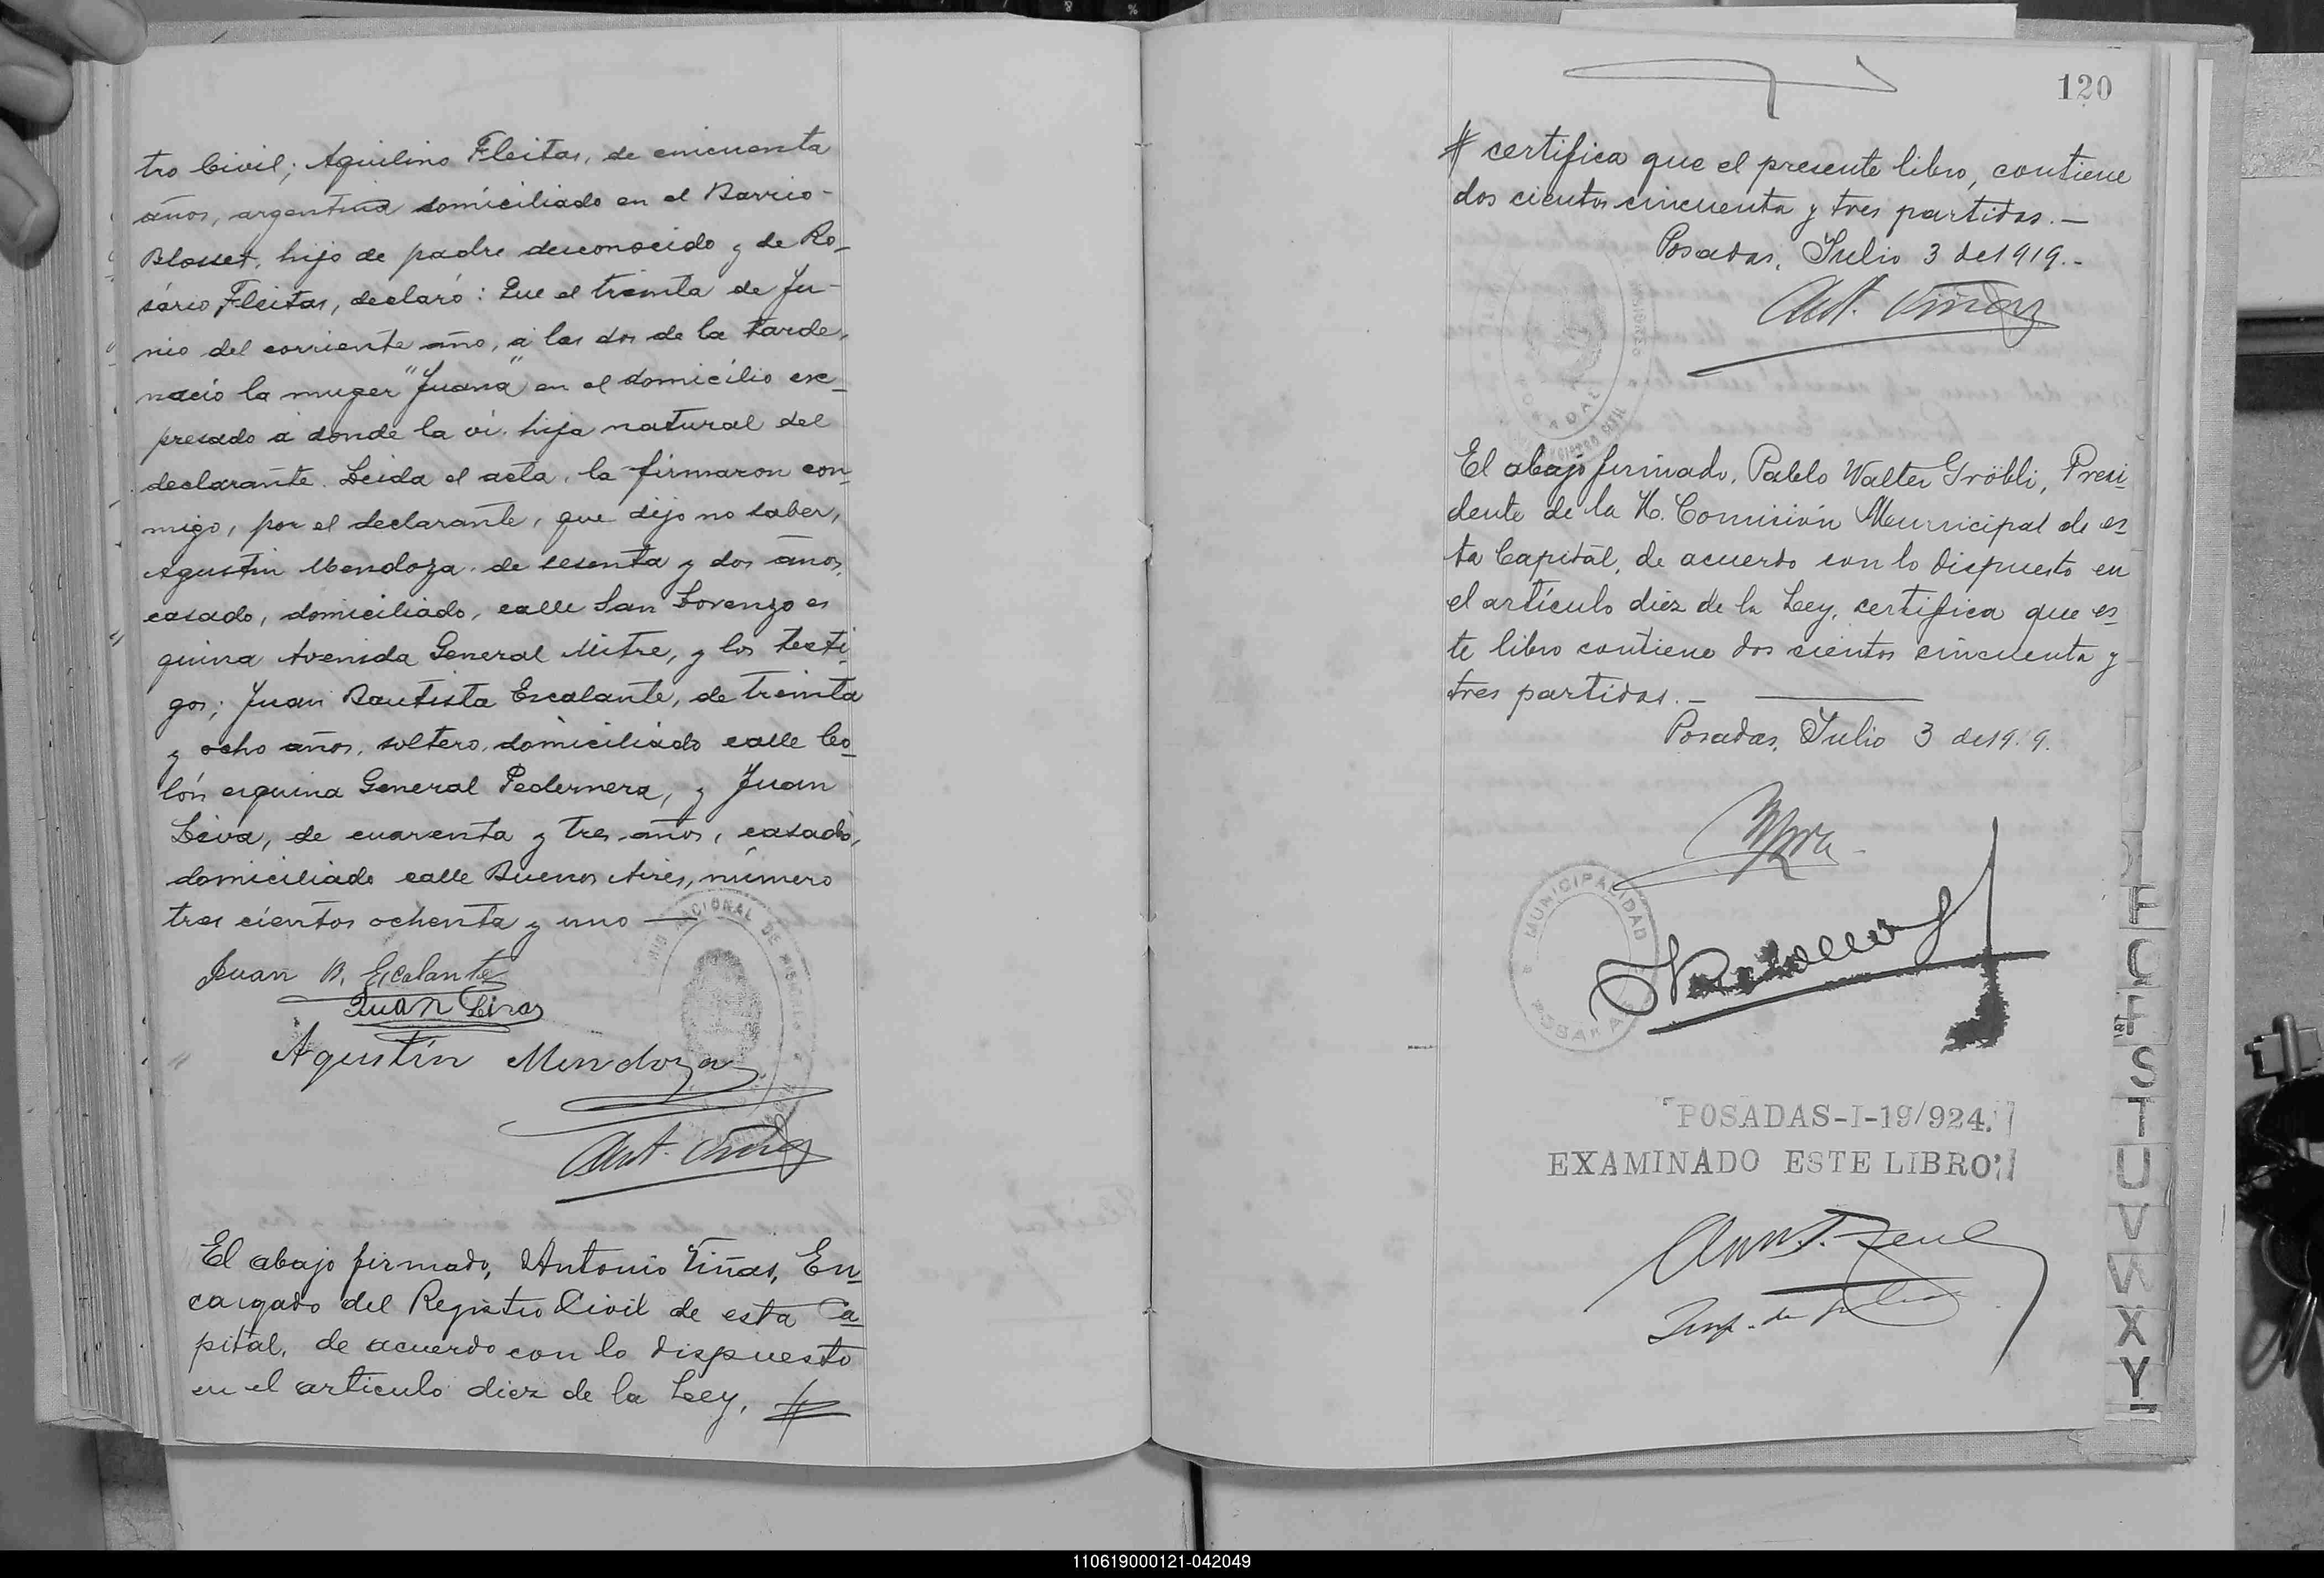 tro Civil; Aquilino Fleitas, de cincuenta
años, argentino domiciliado en el Barrio
Blosset, hijo de padre desconocido y de Ro-
sario Fleitas, declaró: Que el treinta de Ju-
nio del corriente año, á las dos de la tarde,
nació la muger "Juana" en el domicilio ex-
presado á donde la ví, hija natural del
declarante. Leida el acta, la firmaron con-
migo, por el declarante, que dijo no saber,
Agustin Mendoza de sesenta y dos años,
casado, domiciliado, calle San Lorenzo es
quina Avenida General Mitre, y los testi-
gos; Juan Bautista Escalante, de treinta
y ocho años, soltero, domiciliado calle Co-
lón esquina General Pedernera, y Juan
Leiva, de cuarenta y tres años, casado,
domiciliado calle Buenos Aires, número
tres cientos ochenta y uno —
Juan B. Escalante
Juan Leiva
Agustín Mendoza
Ant. Viñas
El abajo firmado, Antonio Viñas, En-
cargado del Registro Civil de esta Ca-
pital, de acuerdo con lo dispuesto
en el articulo diez de la Ley, #
120
# certifica que el presente libro, contiene
dos cientos cincuenta y tres partidas.—
Posadas, Julio 3 de 1919.-
Ant. Viñas
El abajo firmado, Pablo Walter Gröbli, Presi-
dente de la H. Comisión Municipal de es-
ta Capital, de acuerdo con lo dispuesto en
el artículo diez de la Ley, certifica que es-
te libro contiene dos cientos cincuenta y
tres partidas.—
Posadas, Julio 3 de 1919.
MUNICIPALIDAD
POSADAS
POSADAS-I-19/924.
EXAMINADO ESTE LIBRO
F
S
T
U
V
W
X
Y
110619000121-042049